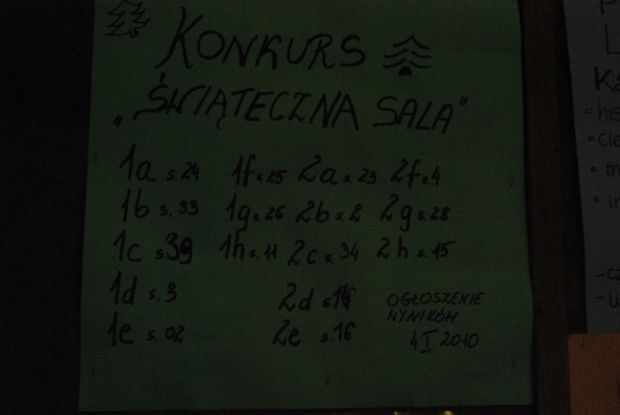 KONKURS
„ŚWIĄTECZNA SALA"
1a s.24 1f s.25 2a s.23 2f s.4
1b s.33 1g s.26 2b s.2 2g s.28
1c s.39 1h s.11 2c s.34 2h s.15
1d s.3 2d
1e s.02 2e s.16
OGŁOSZENIE
WYNIKÓW
4 I 2010